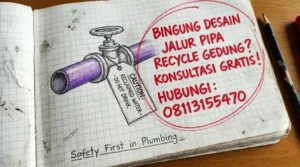 BINGUNG DESAIN
JALUR PIPA
RECYCLE GEDUNG?
KONSULTASI GRATIS!
HUBUNGI:
08113155470
CAUTION:
RECLAIMED WATER -
DO NOT DRINK
Safety First in Plumbing...